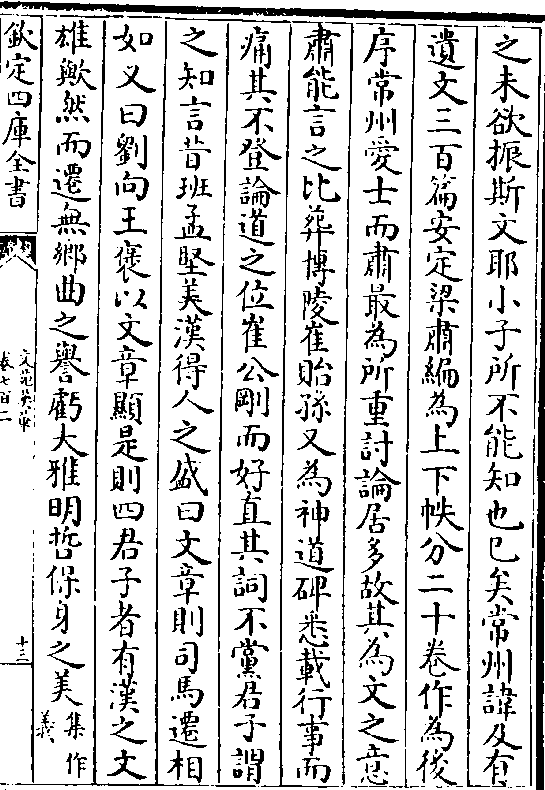 之未欲振斯文耶小子所不能知也已矣常州諱及有
遺文三百篇安定梁肅編為上下帙分二十卷作為後
序常州愛士而肅最為所重討論居多故其為文之意
肅能言之比葬博陵崔貽孫又為神道碑悉載行事而
痛其不登論道之位崔公剛而好直其詞不黨君子謂
之知言昔班孟堅美漢得人之盛曰文章則司馬遷相
如又曰劉向王褒以文章顯是則四君子者有漢之文
雄歟然而遷無鄉曲之譽虧大雅明哲保身之美集作義
欽定四庫全書
文苑英華
卷七百二
十三